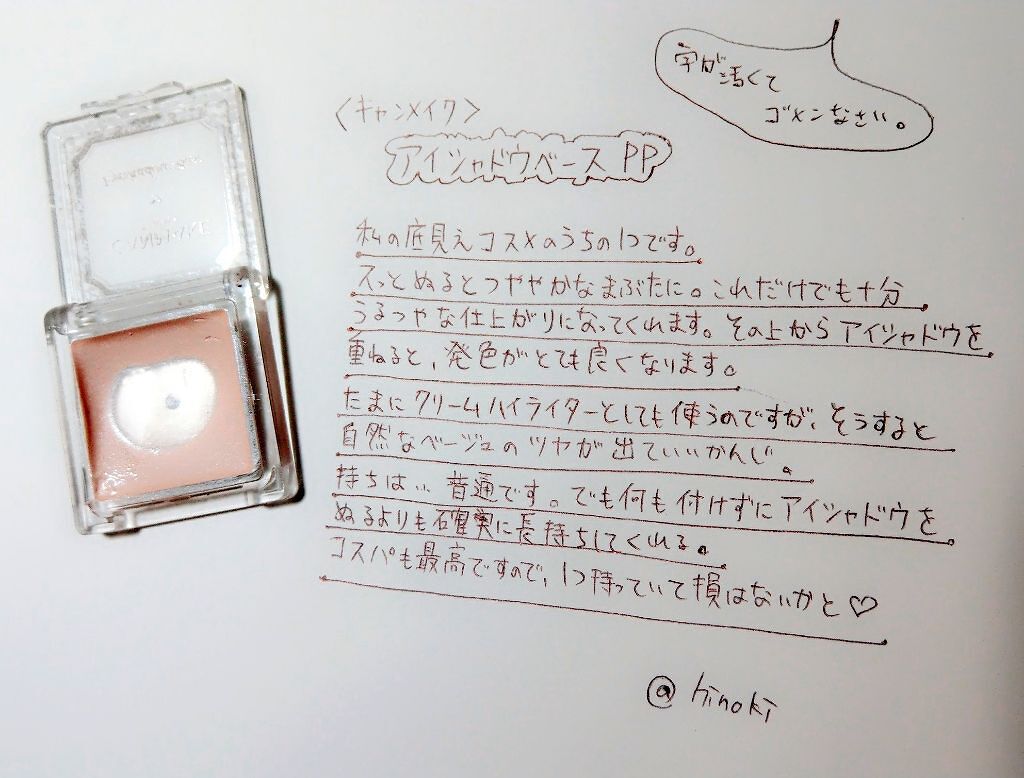 字が汚くて
ゴメンなさい。
<キャンメイク>
アイシャドウベース PP
私の底見えコスメのうちの1つです。
スッとぬるとつややかなまぶたに。これだけでも十分
うるつやな仕上がりになってくれます。その上からアイシャドウを
重ねると、発色がとても良くなります。
たまにクリームハイライターとしても使うのですが、そうすると
自然なベージュのツヤが出ていいかんじ。
持ちは… 普通です。でも何も付けずにアイシャドウを
ぬるよりも確実に長持ちしてくれる。
コスパも最高ですので、1つ持っていて損はないかと♡
@hinoki
CANMAKE